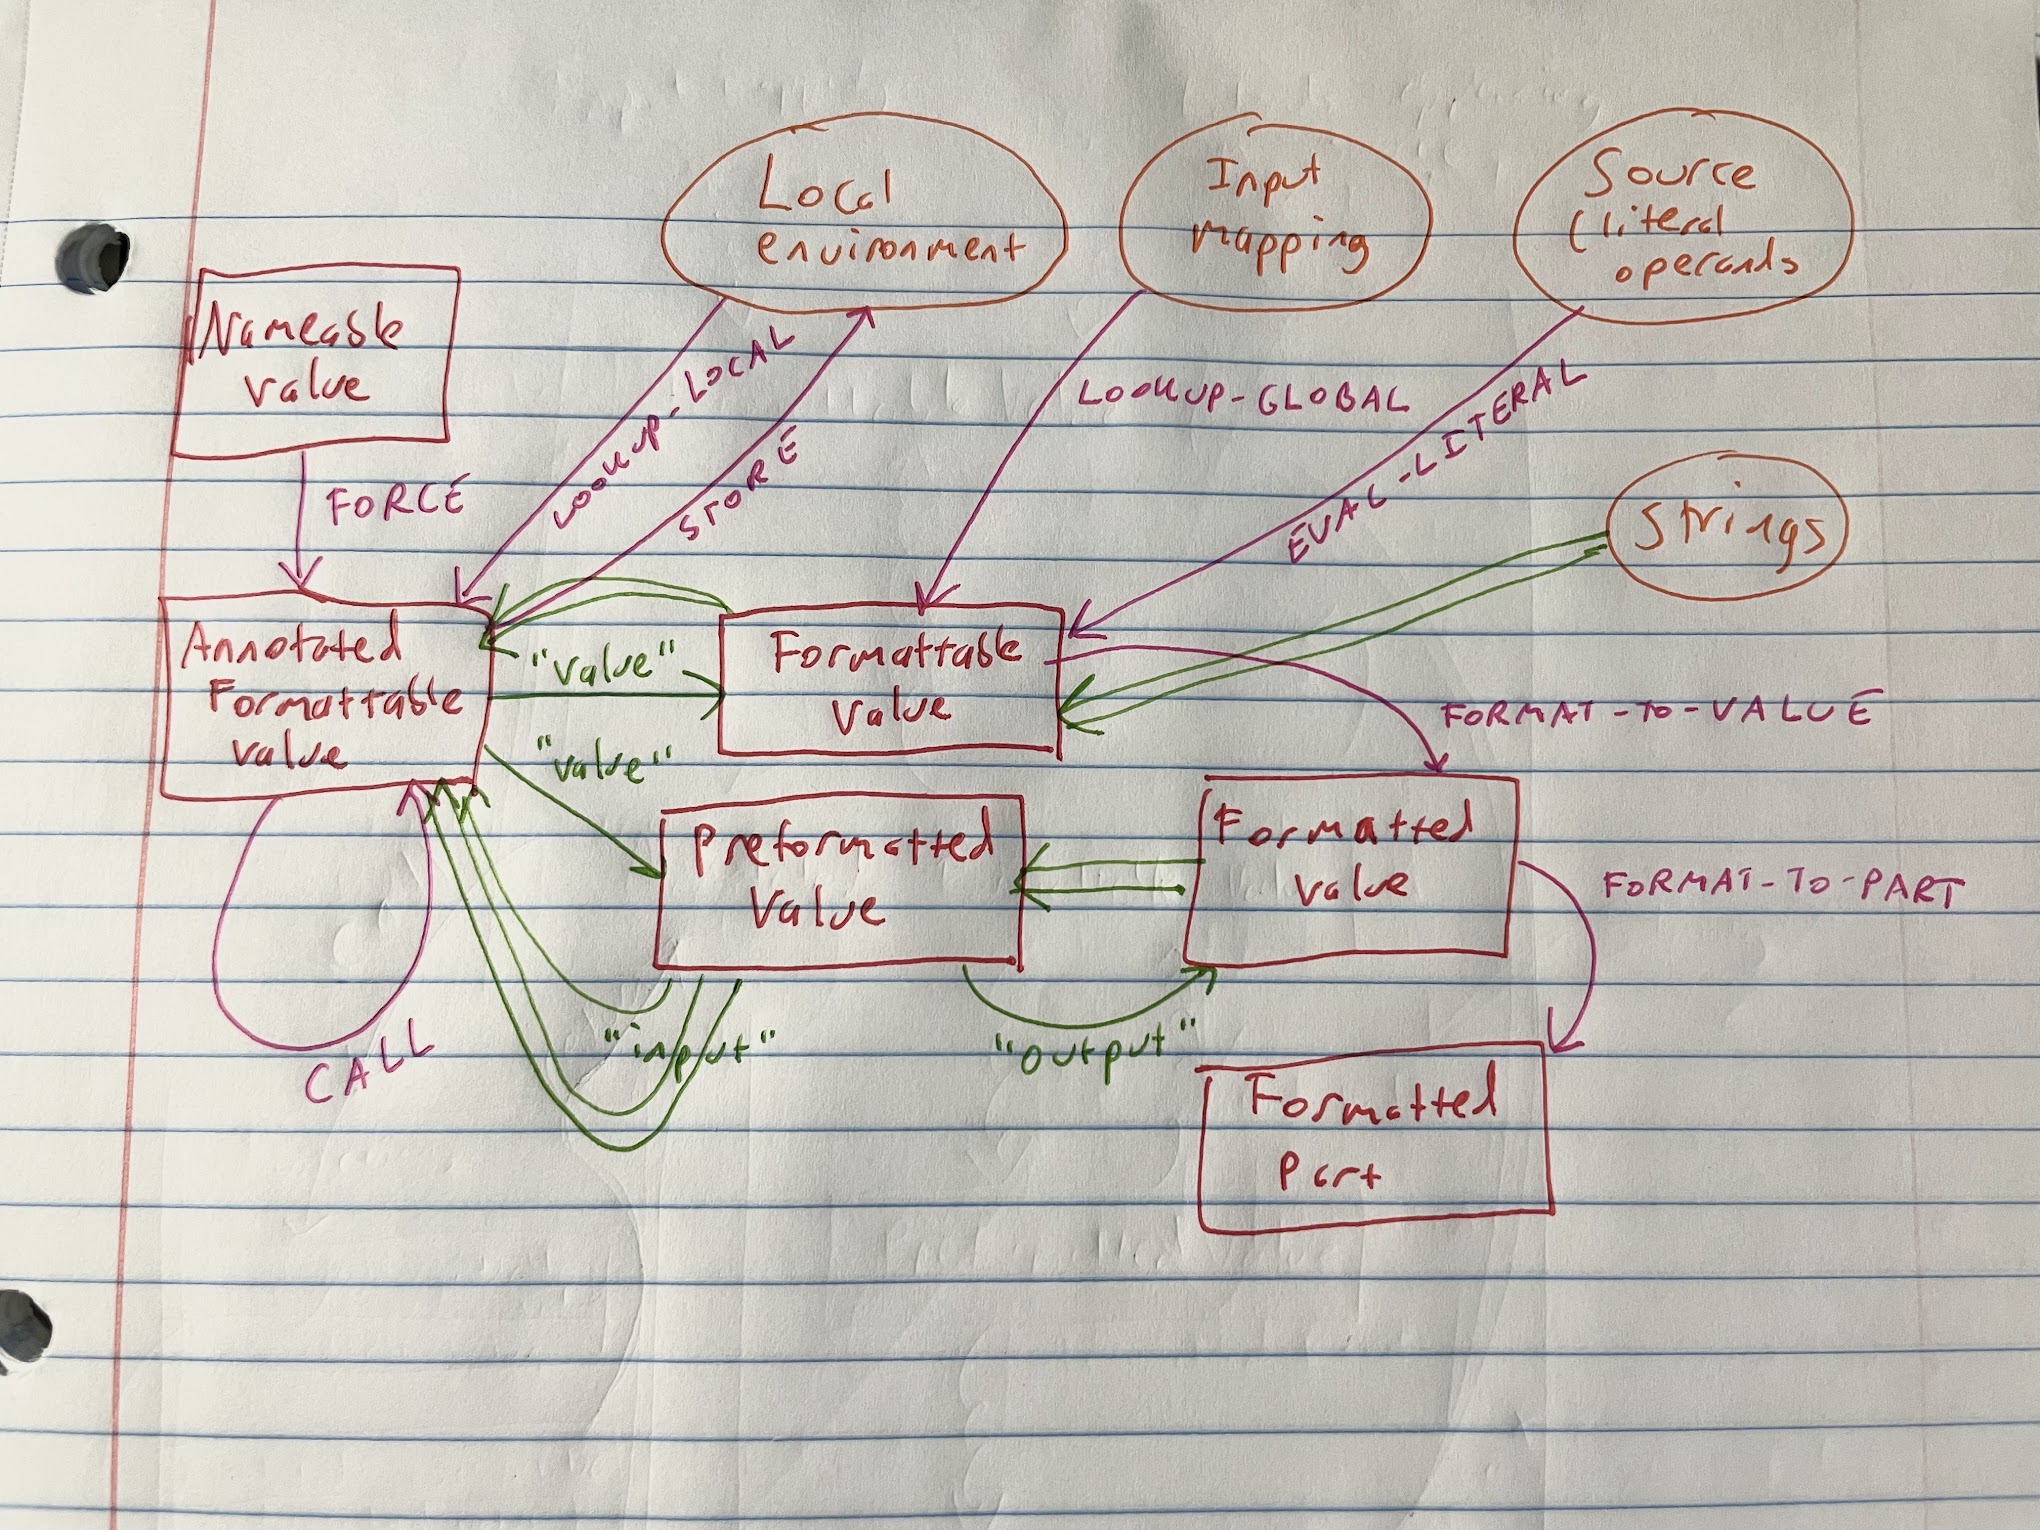 Local
environment
Input
mapping
Source
(literal
operands
Nameable
value
LOOKUP-LOCAL
STORE
LOOKUP-GLOBAL
EVAL-LITERAL
FORCE
Strings
Annotated
Formattable
value
"value"
Formattable
value
FORMAT-TO-VALUE
"value"
Preformatted
Value
Formatted
value
FORMAT-TO-PART
CALL
"input"
"output"
Formatted
Part